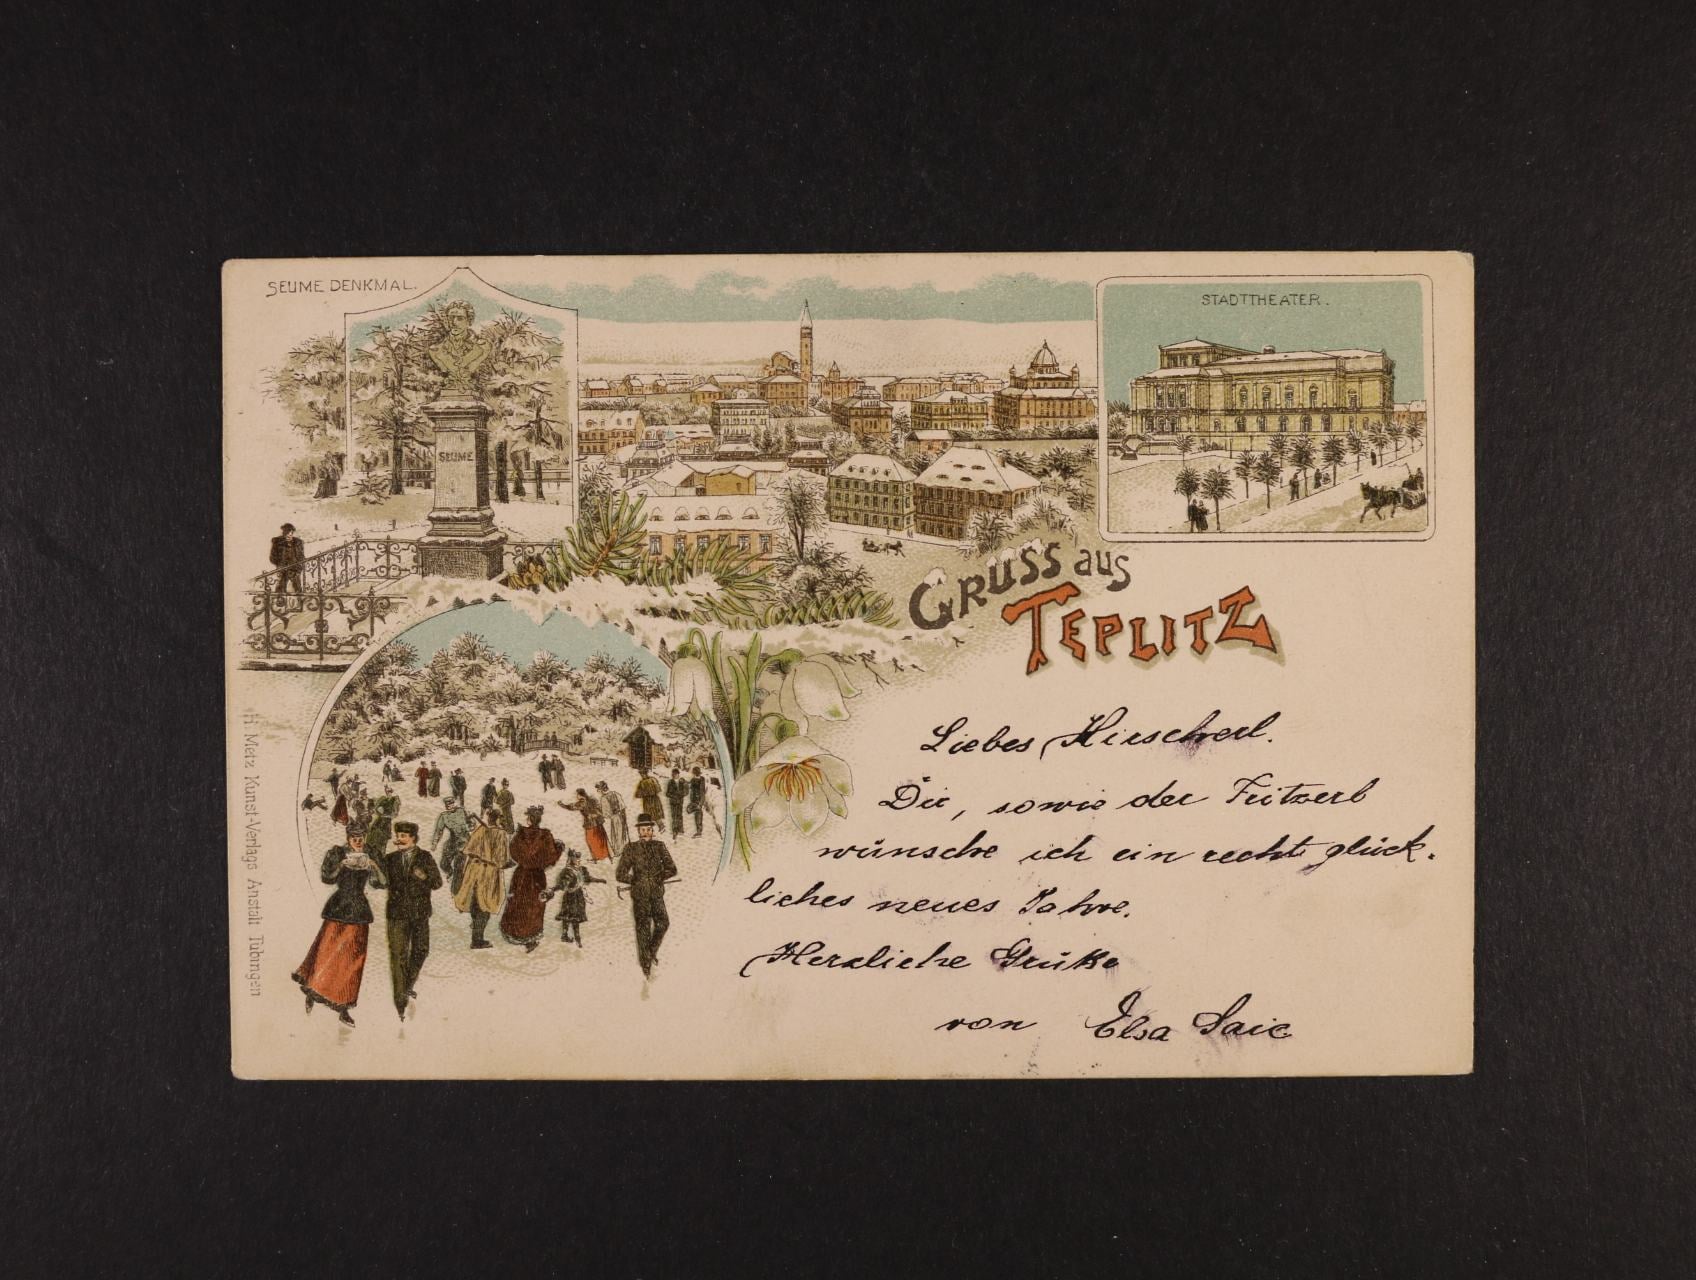 SEUME DENKMAL.
STADTTHEATER.
SEUME
GRUSS aus
TEPLITZ
Liebes Hirscherl.
Dir, sowie der Fritzerl
wünsche ich ein recht glück-
liches neues Jahre.
Herzliche Grüße
von Elsa Saic
H. Metz Kunst-Verlags Anstalt Tübingen